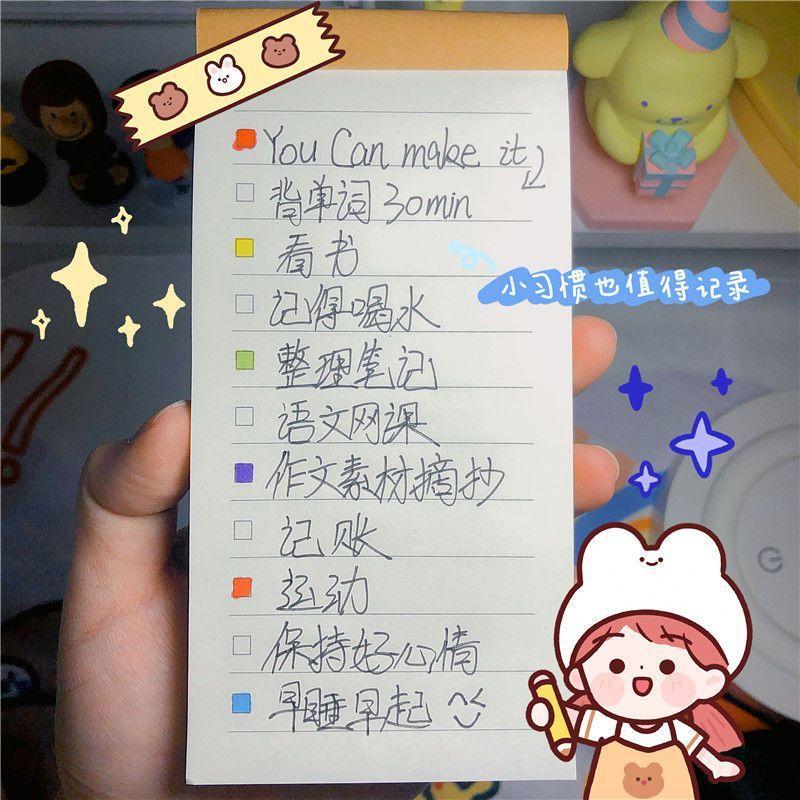 You Can make it
背单词 30min
看书
小习惯也值得记录
记得喝水
整理笔记
语文网课
作文素材摘抄
记账
运动
保持好心情
早睡早起